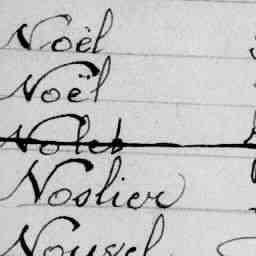 Noël
Noël
Nolet
Noslier
Nouvel